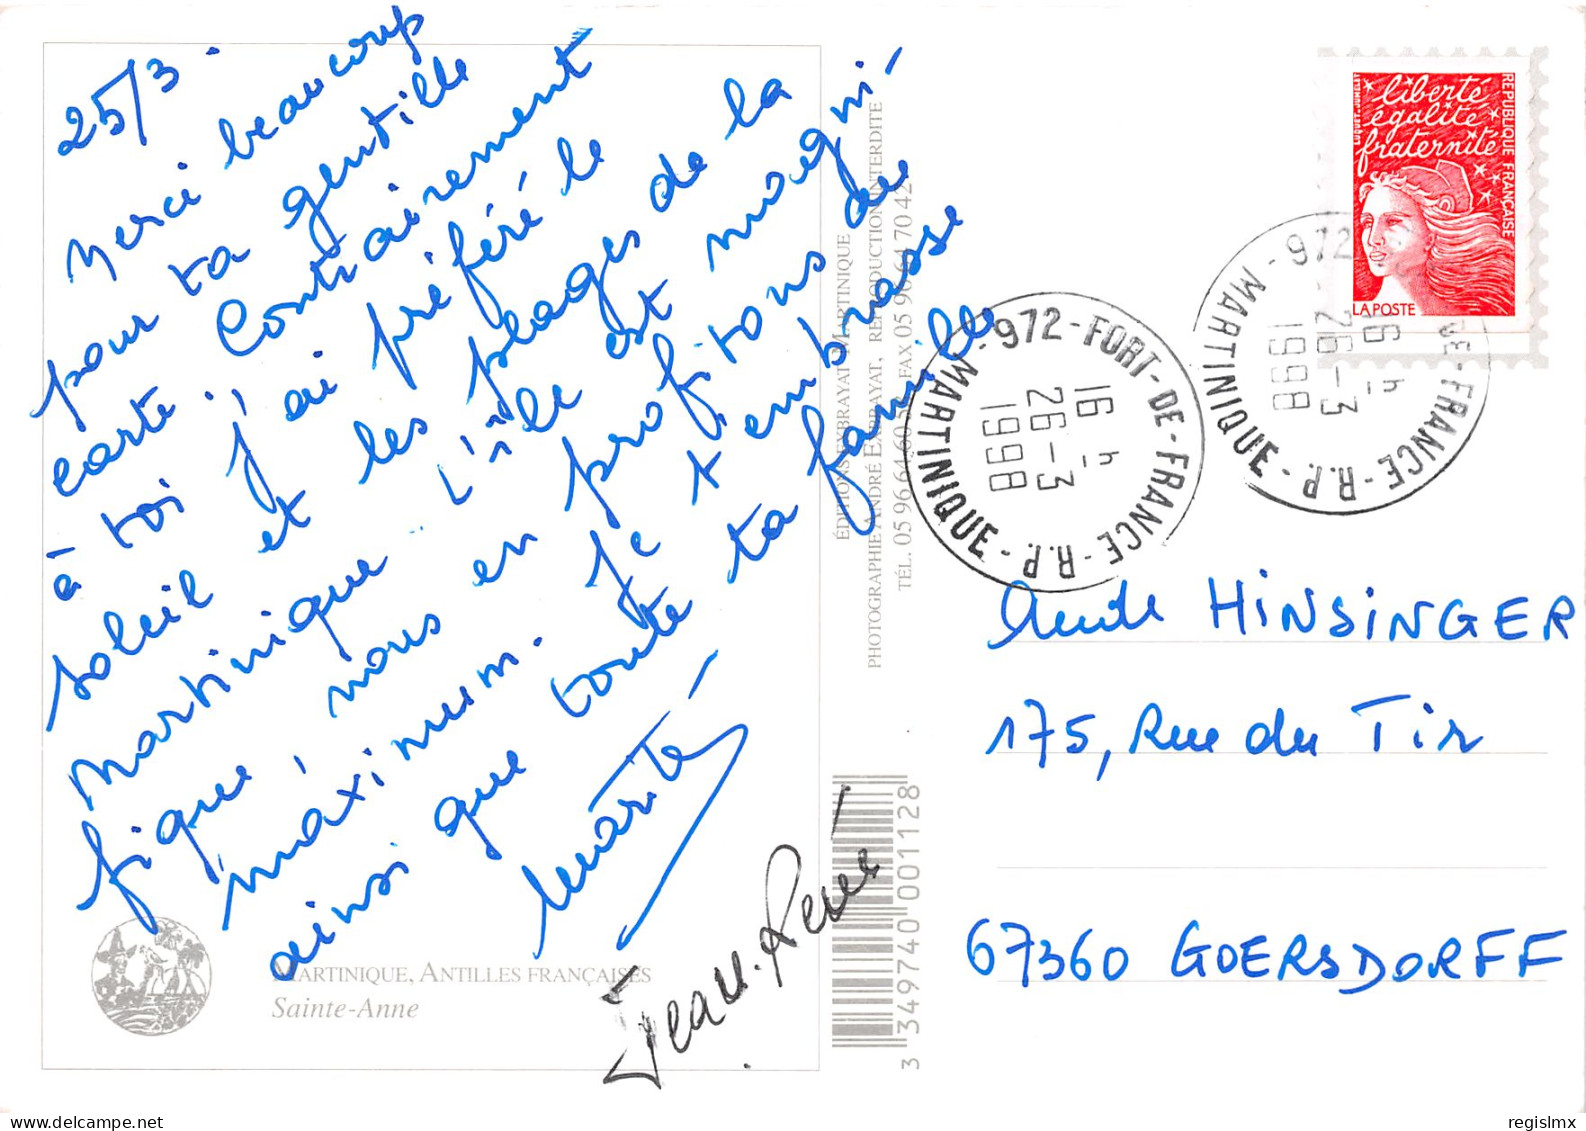 25/3.
Merci beaucoup
pour ta gentille
carte. Contrairement
à toi j'ai préféré le
soleil et les plages de la
Martinique. L'île est magni-
fique, nous en profitons au
maximum. Je t'embrasse
ainsi que toute ta famille
Marité
Jean-René
MARTINIQUE, ANTILLES FRANÇAISES
Sainte-Anne
ÉDITIONS EXBRAYAT MARTINIQUE
PHOTOGRAPHIE ANDRÉ EXBRAYAT, REPRODUCTION INTERDITE
TÉL. 05 96 64 60 FAX 05 96 64 70 42
3 349740 001128
liberté
égalité
fraternité
RÉPUBLIQUE FRANÇAISE
LA POSTE
972 - FORT-DE-FRANCE - R.P. - MARTINIQUE -
16 h
26 - 3
1998
972 - DE-FRANCE - R.P. - MARTINIQUE -
16 h
26 - 3
1998
Aude HINSINGER
175, Rue du Tir
67360 GOERSDORFF
regislmx